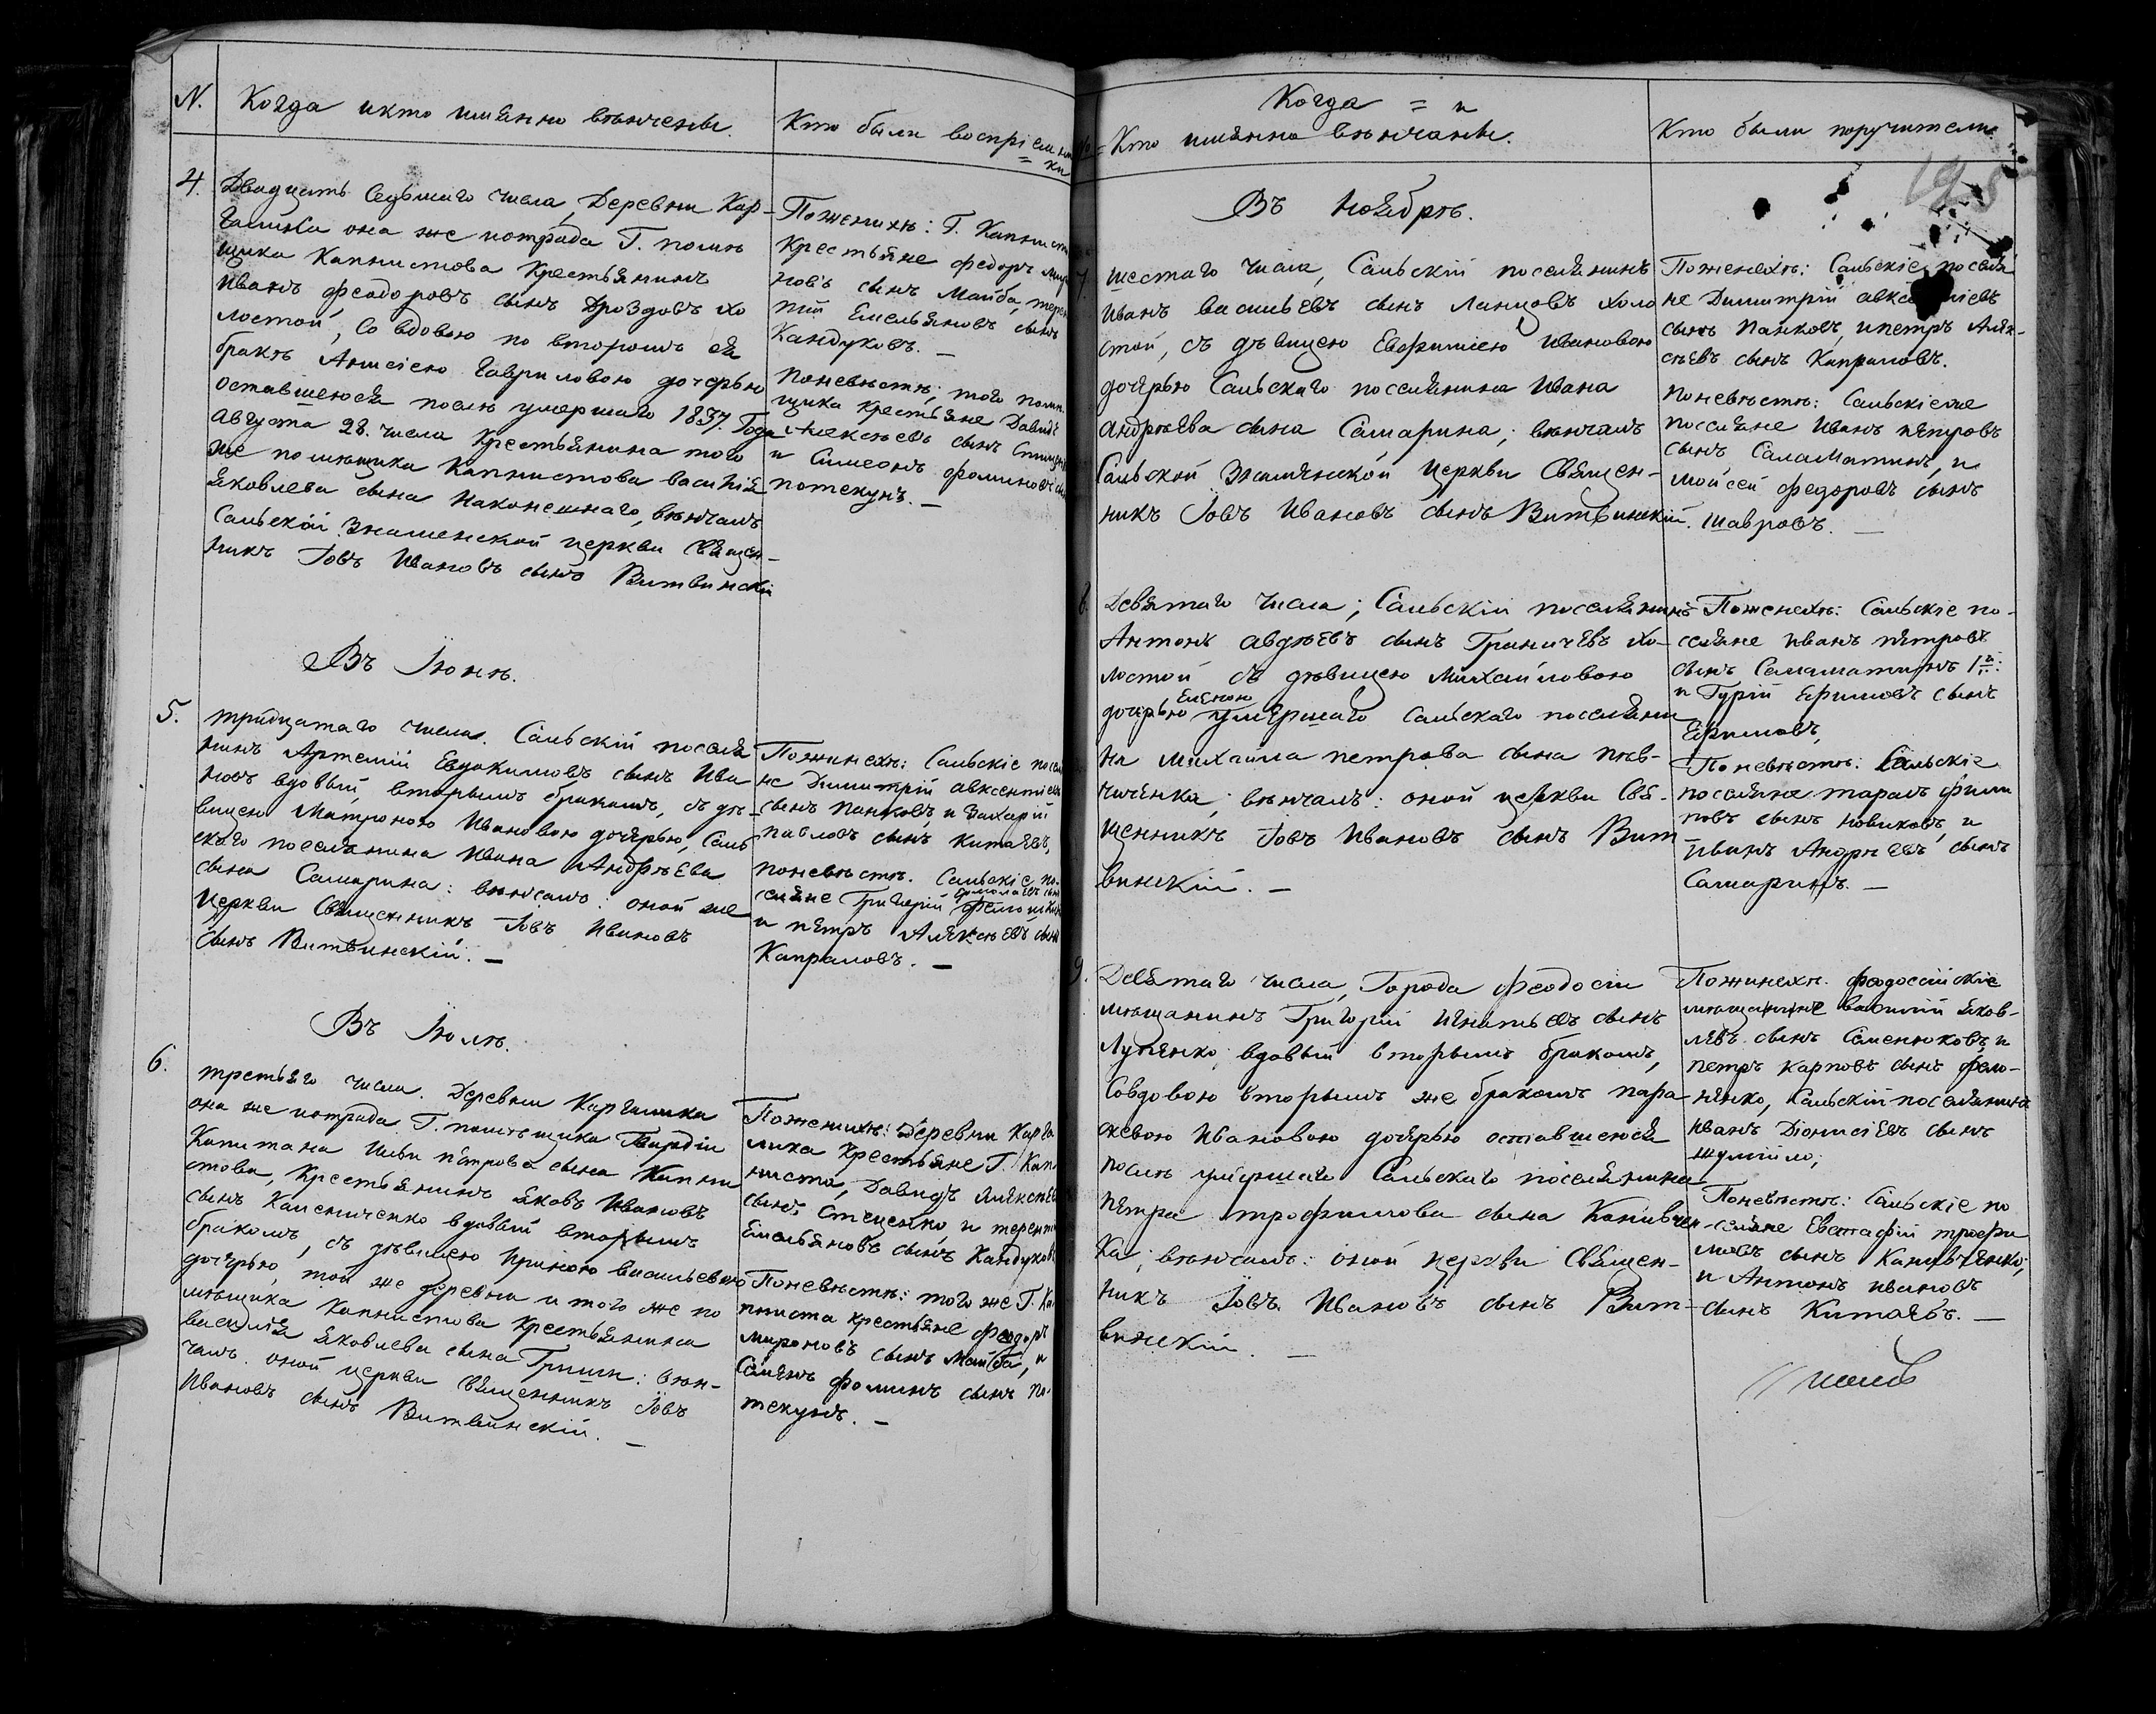 N.
Когда икто имянно вѣнчены.
Кто были воспріемни
=ки
4.
Двадцать Седьмаго числа, Деревни Кар-
галика она же нотрада Г. помѣ
щика Капнистова Крестьянинъ
Иванъ феодоровъ сынъ Дроздовъ хо
лостой, Со вдовою по второмъ ея
бракѣ Анисіею Гавриловою дочерью
оставшеюся послѣ умершаго 1837. Года
Августа 28. числа Крестьянина того
же помѣщика Капнистова василія
Яковлева сына Наконешнаго, вѣнчалъ
Сальской Знаменской церкви Священ-
никъ Іовъ Ивановъ сынъ Витвинскій
Поженихѣ: Г. Капнист
Крестьяне федоръ миро
новъ сынъ Майба, терен
тій Емельяновъ сынъ
Кандуковъ. —
Поневѣстѣ; того поми
щика крестьяне Давидъ
Алексѣевъ сынъ Стецен
и Симеонъ фоминовъ сы
потекунъ. —
Въ Іюнѣ.
5.
тридцатаго числа. Сальскій поселя
нинъ Артемій Евдокимовъ сынъ Ива
новъ вдовый, вторымъ бракомъ, съ дѣ-
вицею Матроною Ивановою дочѣрью, Саль
скаго поселянина Ивана Андрѣева
сына Самарина: вѣнчалъ: оной же
Церкви Священникъ Іовъ Ивановъ
сынъ Витвинскій. —
Пожинехѣ: Сальскіе посел
не Димитрій авксентіевъ
сынъ панковъ, и Захарій
павловъ сынъ китаявъ,
поневѣстѣ. Сальскіе по-
селяне Григорій
и пѣтръ Алѣксѣевъ сынъ
Капраловъ. —
Въ Іюлѣ.
6.
третьяго числа. Деревни Каргалика
она же нотрада Г. помѣщика Гвардіи
Капитана Ильи пѣтрова сына Капни
стова, Крестьянинъ яковъ Ивановъ
сынъ Калениченко вдовый вторымъ
бракомъ, съ дѣвицею Ириною васильевою
дочѣрью, той же деревни и того же по
мѣщика Капнистова Крестьянина
василія яковлева сына Гриши: вѣн-
чалъ. оной церкви священникъ Іовъ
Ивановъ сынъ Витвинскій. —
Поженихѣ: Деревни Карга
лика Крестьяне Г. Кап
ниста, Давидъ Алѣксѣев
сынъ Стеценко, и терент
Емельяновъ сынъ Кандуковъ
Поневѣстѣ: того же Г. Ка
пниста крестьяне феодоръ
мироновъ сынъ Майба, и
Семѣнъ фоминъ сынъ по-
текунъ. —
Когда = и
= Кто имянно вѣнчаны.
Кто были поручители.
Въ Ноябрѣ.
7.
шестаго числа, Сальскій поселянинъ
Иванъ васильевъ сынъ Ланцовъ холо
стой, съ дѣвицею Евфиміею Ивановою
дочѣрью Сальскаго поселянина Ивана
Андрѣева сына Самарина; вѣнчалъ
Сальской Знамянской Церкви Священ-
никъ Іовъ Ивановъ сынъ Витвинскій.
Поженехѣ: Сальскіе поселя
не Димитрій
сынъ Панковъ, и петръ Алѣк-
сѣевъ сынъ Капраловъ.
поневѣстѣ: Сальскіеже
поселяне Иванъ пѣтровъ
сынъ Саламатинъ, и
Мойсей федоровъ сынъ
шавровъ. —
8.
Девятаго числа; Сальскій поселянинъ
Антонъ авдѣевъ сынъ Граничевъ хо-
лостой съ дѣвицею Михайловою
Еленою
дочерью умершаго сальскаго поселяни
на Михаила петрова сына пѣв-
чичѣнка; вѣнчалъ: оной церкви Свя-
щенникъ Іовъ Ивановъ сынъ Вит
винскій. —
Поженехѣ: Сальскіе по-
селяне иванъ пѣтровъ
сынъ Саламатинъ 1й:
и Гурій Ефимовъ сынъ
Ефимовъ,
Поневѣстѣ: Сальскіе
поселяне тарасъ фили
повъ сынъ новиковъ, и
иванъ Андрѣевъ сынъ
Самаринъ. —
9.
Девятаго числа, Города Феодосіи
мѣщанинъ Григорій Игнатьевъ сынъ
Луценко вдовый вторымъ бракомъ,
Совдовою вторымъ же бракомъ пара
скевою Ивановою дочѣрью оставшеюся
послѣ умершаго Сальскаго поселянина
Пѣтра трофимова сына Канивчен-
ка; вѣнчалъ: оной церкви Священ-
никъ Іовъ Ивановъ сынъ Вит-
винскій. —
Пожинехѣ. феодосійскіе
мѣщанине василій яков-
лѣвъ сынъ Семенюковъ, и
петръ карповъ сынъ фоме-
нѣнко, Сальскій поселянинъ
иванъ Діонисіевъ сынъ
шумило;
Поневѣстѣ: Сальскіе по
селяне Евстафій трофи
мовъ сынъ Канивчѣнко;
и Антонъ ивановъ
сынъ Китаявъ. —